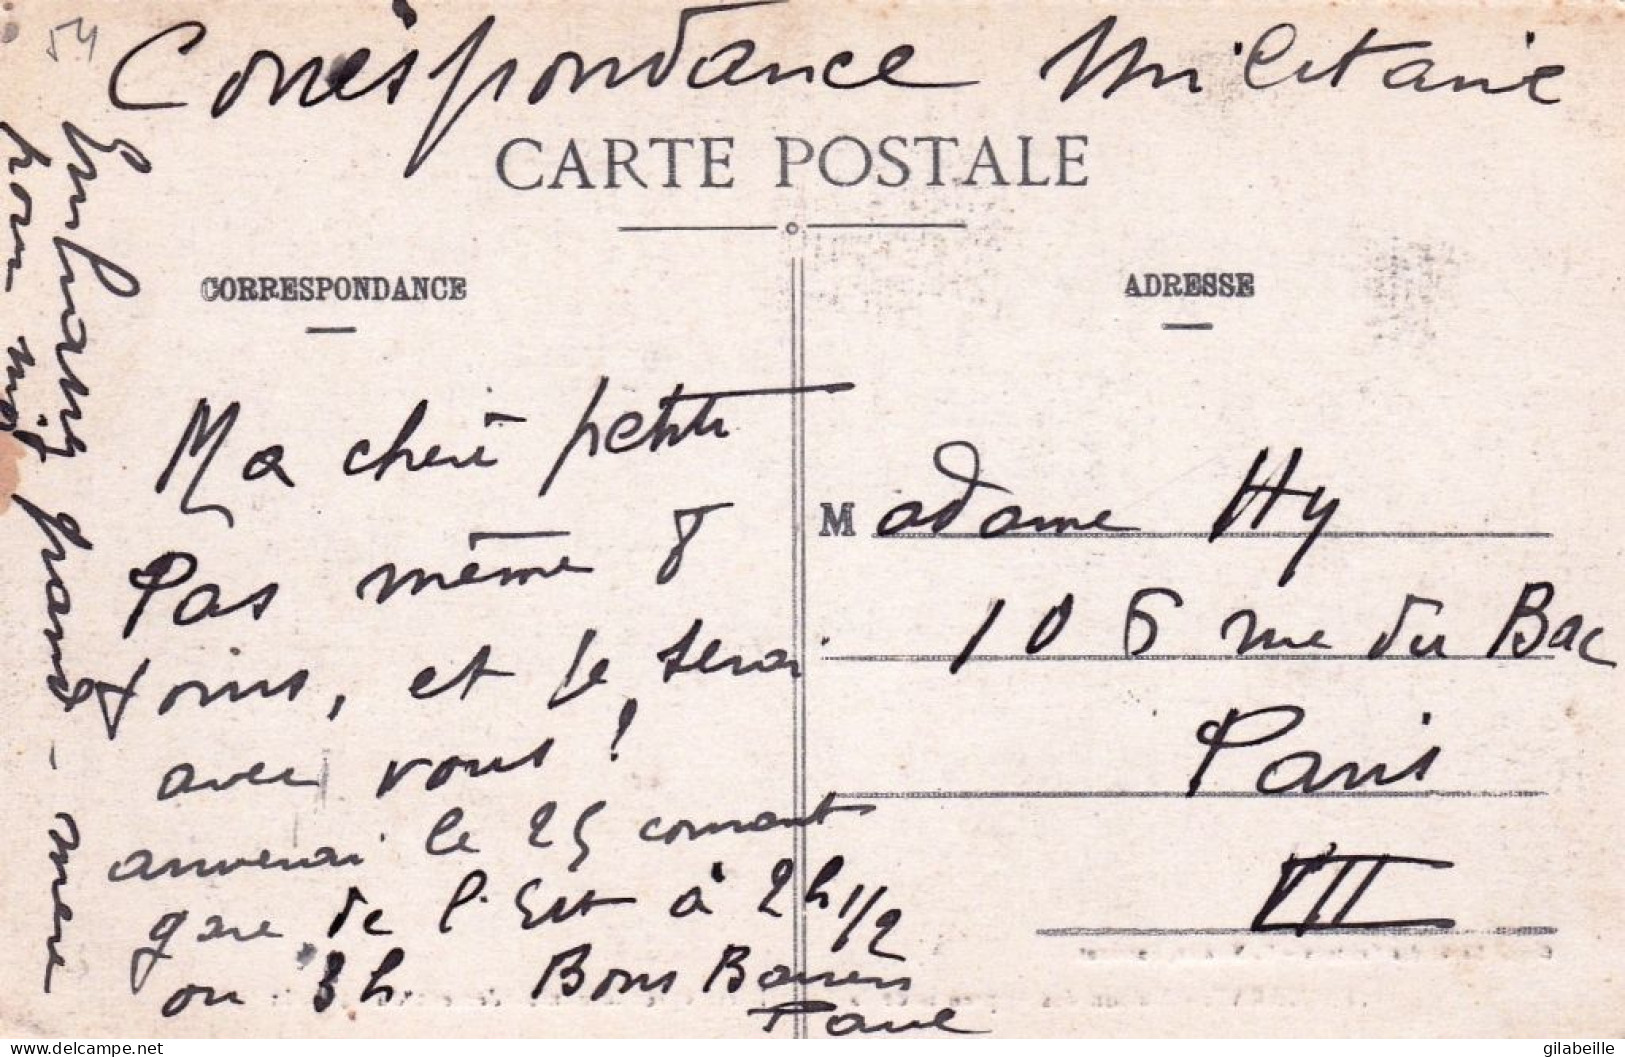 54
Correspondance Militaire
CARTE POSTALE
CORRESPONDANCE
ADRESSE
Ma chère petite
Pas même 8
jours, et je serai
avec vous !
arriverai le 25 courant
gare de l'Est à 2h 1/2
ou 3h. Bons Baisers
Paul
Embrassez grand-mère
pour moi
Madame Hy
106 rue du Bac
Paris
VII
delcampe.net
gilabeille